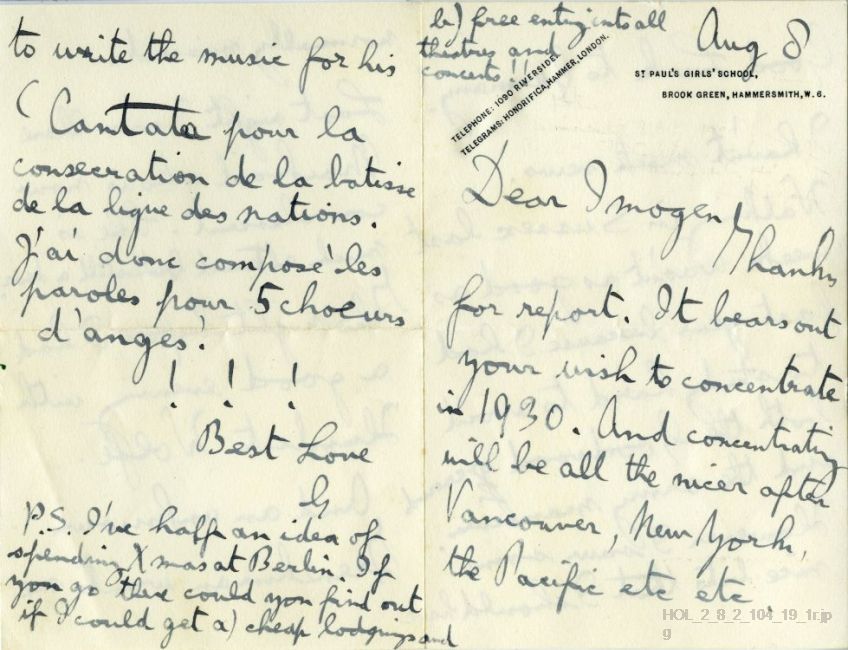 Aug 8
ST PAUL'S GIRLS' SCHOOL,
BROOK GREEN, HAMMERSMITH, W. 6.
TELEPHONE: 1090 RIVERSIDE.
TELEGRAMS: HONORIFICA, HAMMER, LONDON.
Dear Imogen
Thanks
for report. It bears out
your wish to concentrate
in 1930. And concentrating
will be all the nicer after
Vancouver, New York,
the Pacific etc etc.
to write the music for his
(Cantata pour la
consecration de la batisse
de la ligue des nations.
J'ai donc composé les
paroles pour 5 choeurs
d'anges!
! ! !
Best Love
G
P.S. I've half an idea of
spending Xmas at Berlin. If
you go there could you find out
if I could get a) cheap lodgings and
b) free entry into all
theatres and
concerts!!
HOL_2_8_2_104_19_1r.jp
g